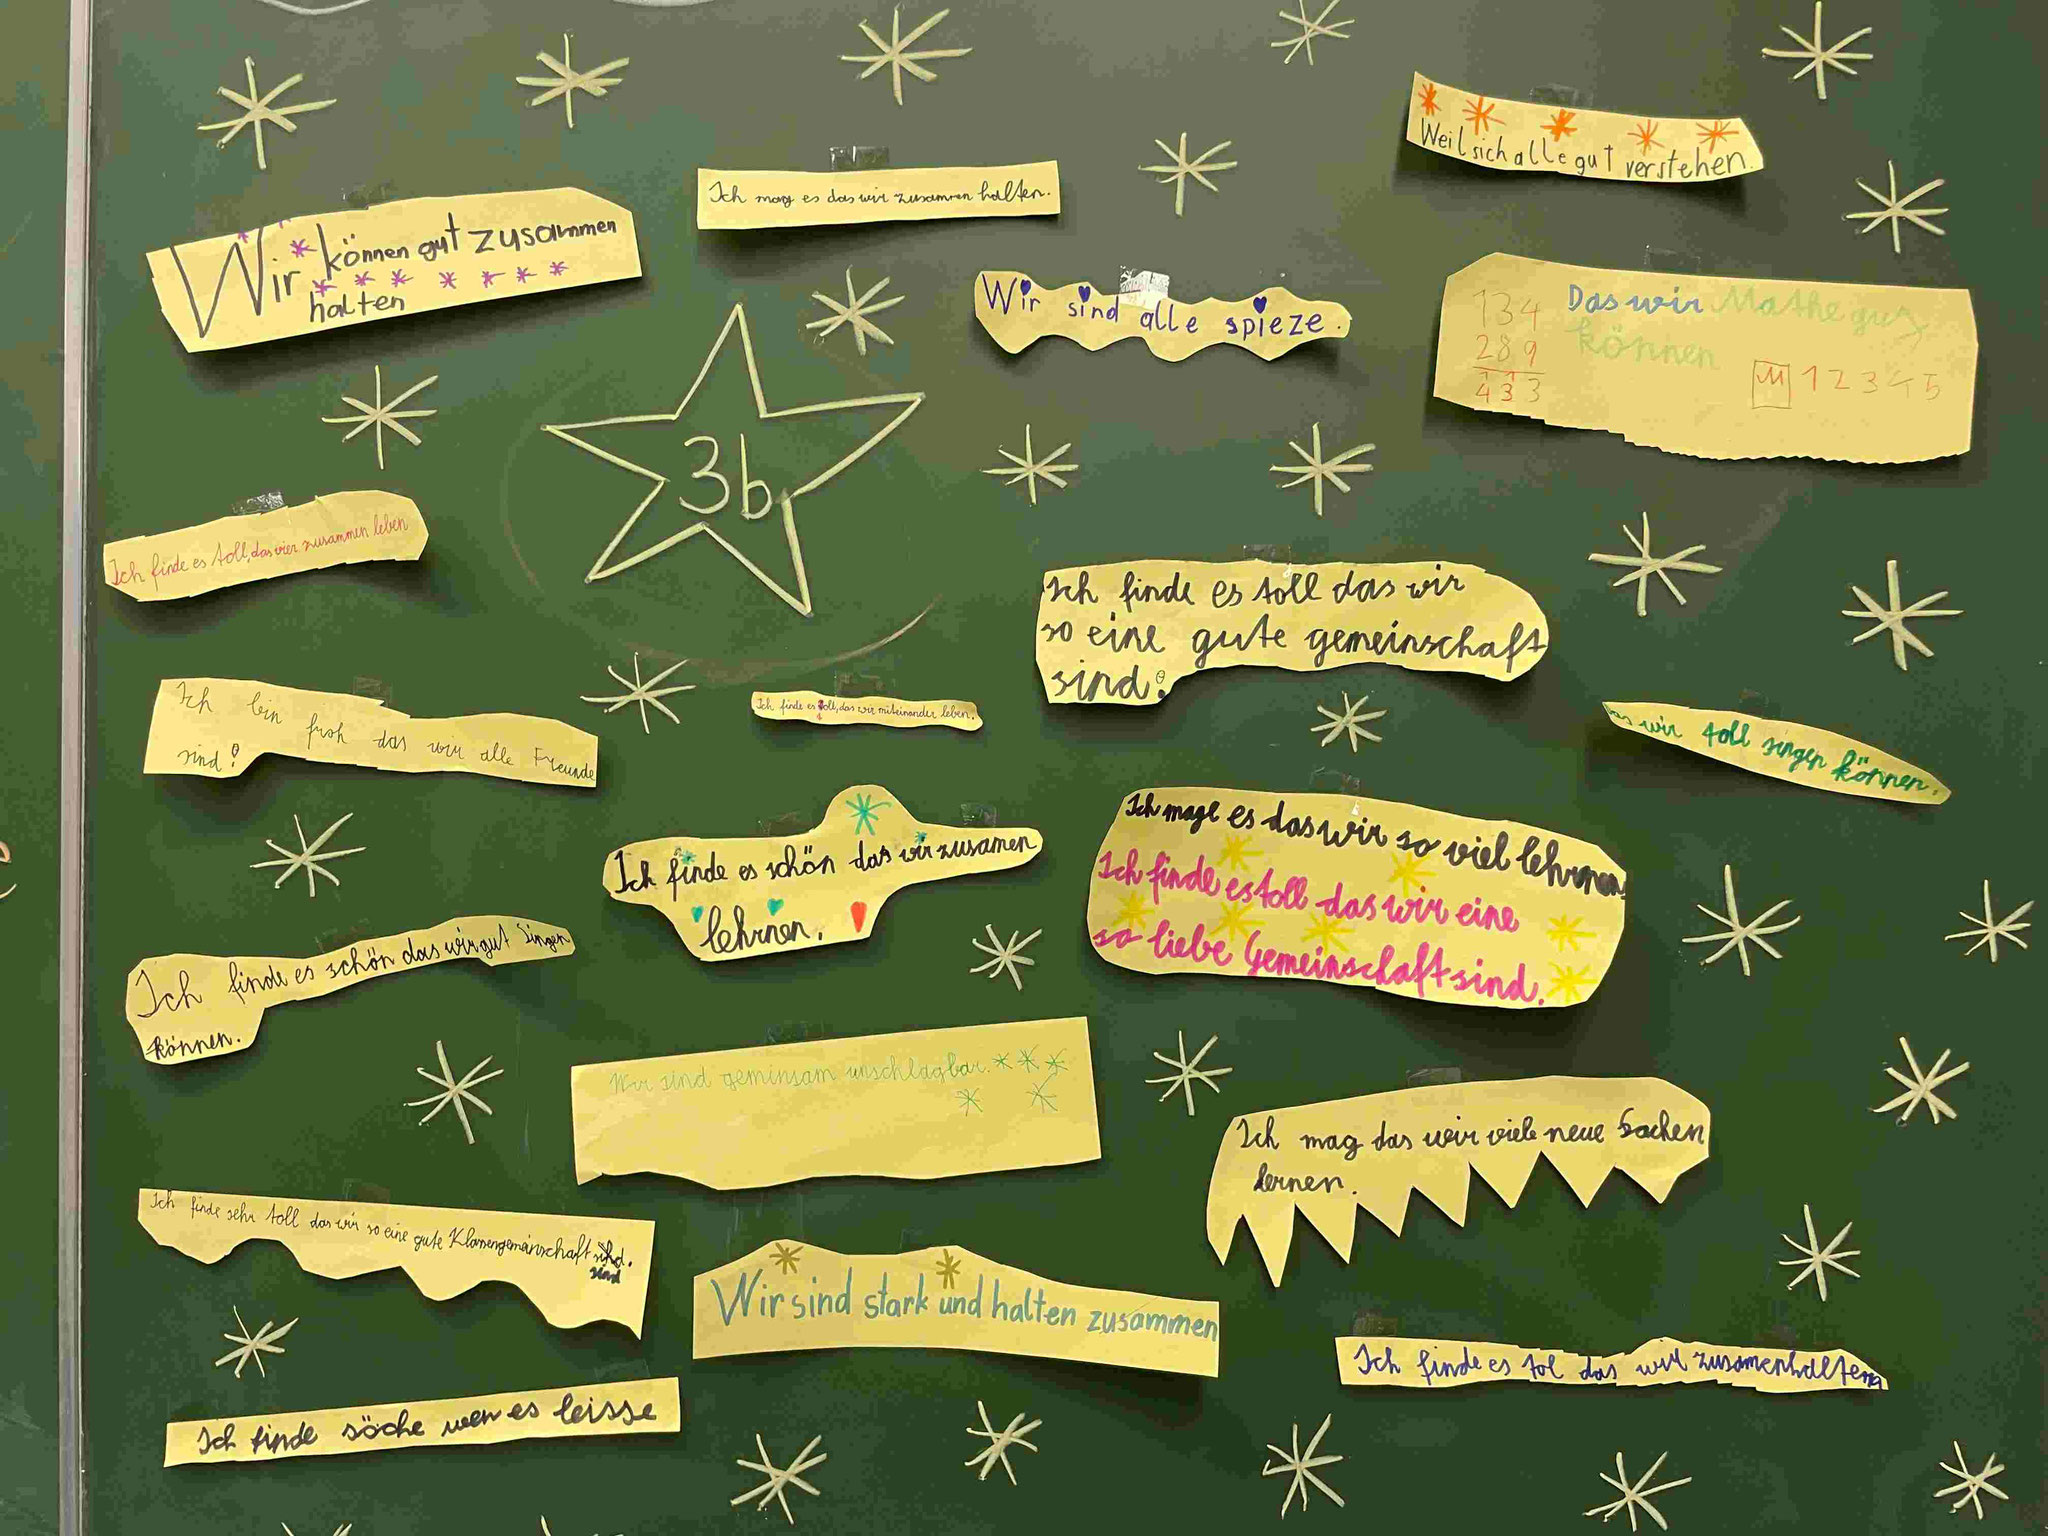 Weil sich alle gut verstehen.
Ich mag es das wir zusammen halten.
Wir können gut zusammen
halten
Wir sind alle spieze.
134
289
433
Das wir Mathe gut
können
M 1 2 3 4 5
3b
Ich finde es toll, das wier zusammen leben
Ich finde es toll das wir
so eine gute gemeinschaft
sind!
Ich bin froh das wir alle Freunde
sind!
Ich finde es toll, das wir miteinander leben.
Das wir toll singen können.
Ich finde es schön das wir zusamen
lehrnen.
Ich mage es das wir so viel lehrnen.
Ich finde es toll das wir eine
so liebe Gemeinschaft sind.
Ich finde es schön das wir gut Singen
können.
Wir sind geminsam unschlagbar.
Ich mag das wir viele neue Sachen
lernen.
Ich finde sehr toll das wir so eine gute Klassengemeinschaft sind.
sind
Wir sind stark und halten zusammen
Ich finde es tol das wir zusamenhalten
Ich finde söche wen es leisse